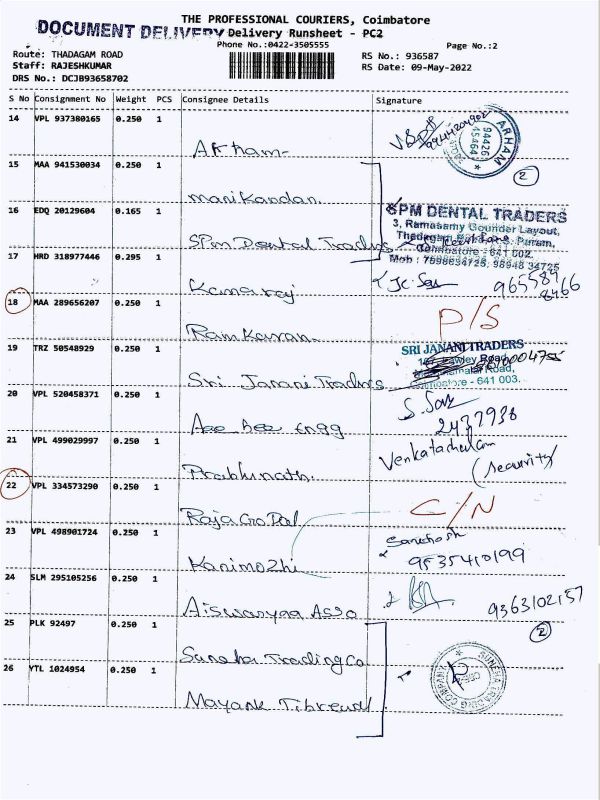 THE PROFESSIONAL COURIERS, Coimbatore
DOCUMENT DELIVERY Delivery Runsheet - PC2
Phone No.:0422-3505555 Page No.:2
Route: THADAGAM ROAD RS No.: 936587
Staff: RAJESHKUMAR RS Date: 09-May-2022
DRS No.: DCJB93658702
S No Consignment No Weight PCS Consignee Details Signature
14 VPL 937380165 0.250 1
Arham
ARHAM
94426
45464
2
15 MAA 941530034 0.250 1
Manikandan
16 EDQ 20129604 0.165 1
SPM Dental Traders
SPM DENTAL TRADERS
3, Ramasamy Gounder Layout,
Coimbatore - 641 002.
Mob : 7598634725, 98948 34725
17 HRD 318977446 0.295 1
Kamaraj
18 MAA 289656207 0.250 1
Ramkaran
P/S
19 TRZ 50548929 0.250 1
Sri Janani Traders
SRI JANANI TRADERS
Road,
Coimbatore - 641 003.
20 VPL 520458371 0.250 1
Aee Bee Engg
2437938
21 VPL 499029997 0.250 1
Prabhunath
Venkatachalam
(security)
22 VPL 334573290 0.250 1
Raja Go Pal
C/N
23 VPL 498901724 0.250 1
Kanimozhi
Santhosh
9535410199
24 SLM 295105256 0.250 1
Aiswaryaa Asso
9363102157
2
25 PLK 92497 0.250 1
Suneha Trading Co
SUNEHA TRADING COMPANY
26 VTL 1024954 0.250 1
Mayank Tibrewal